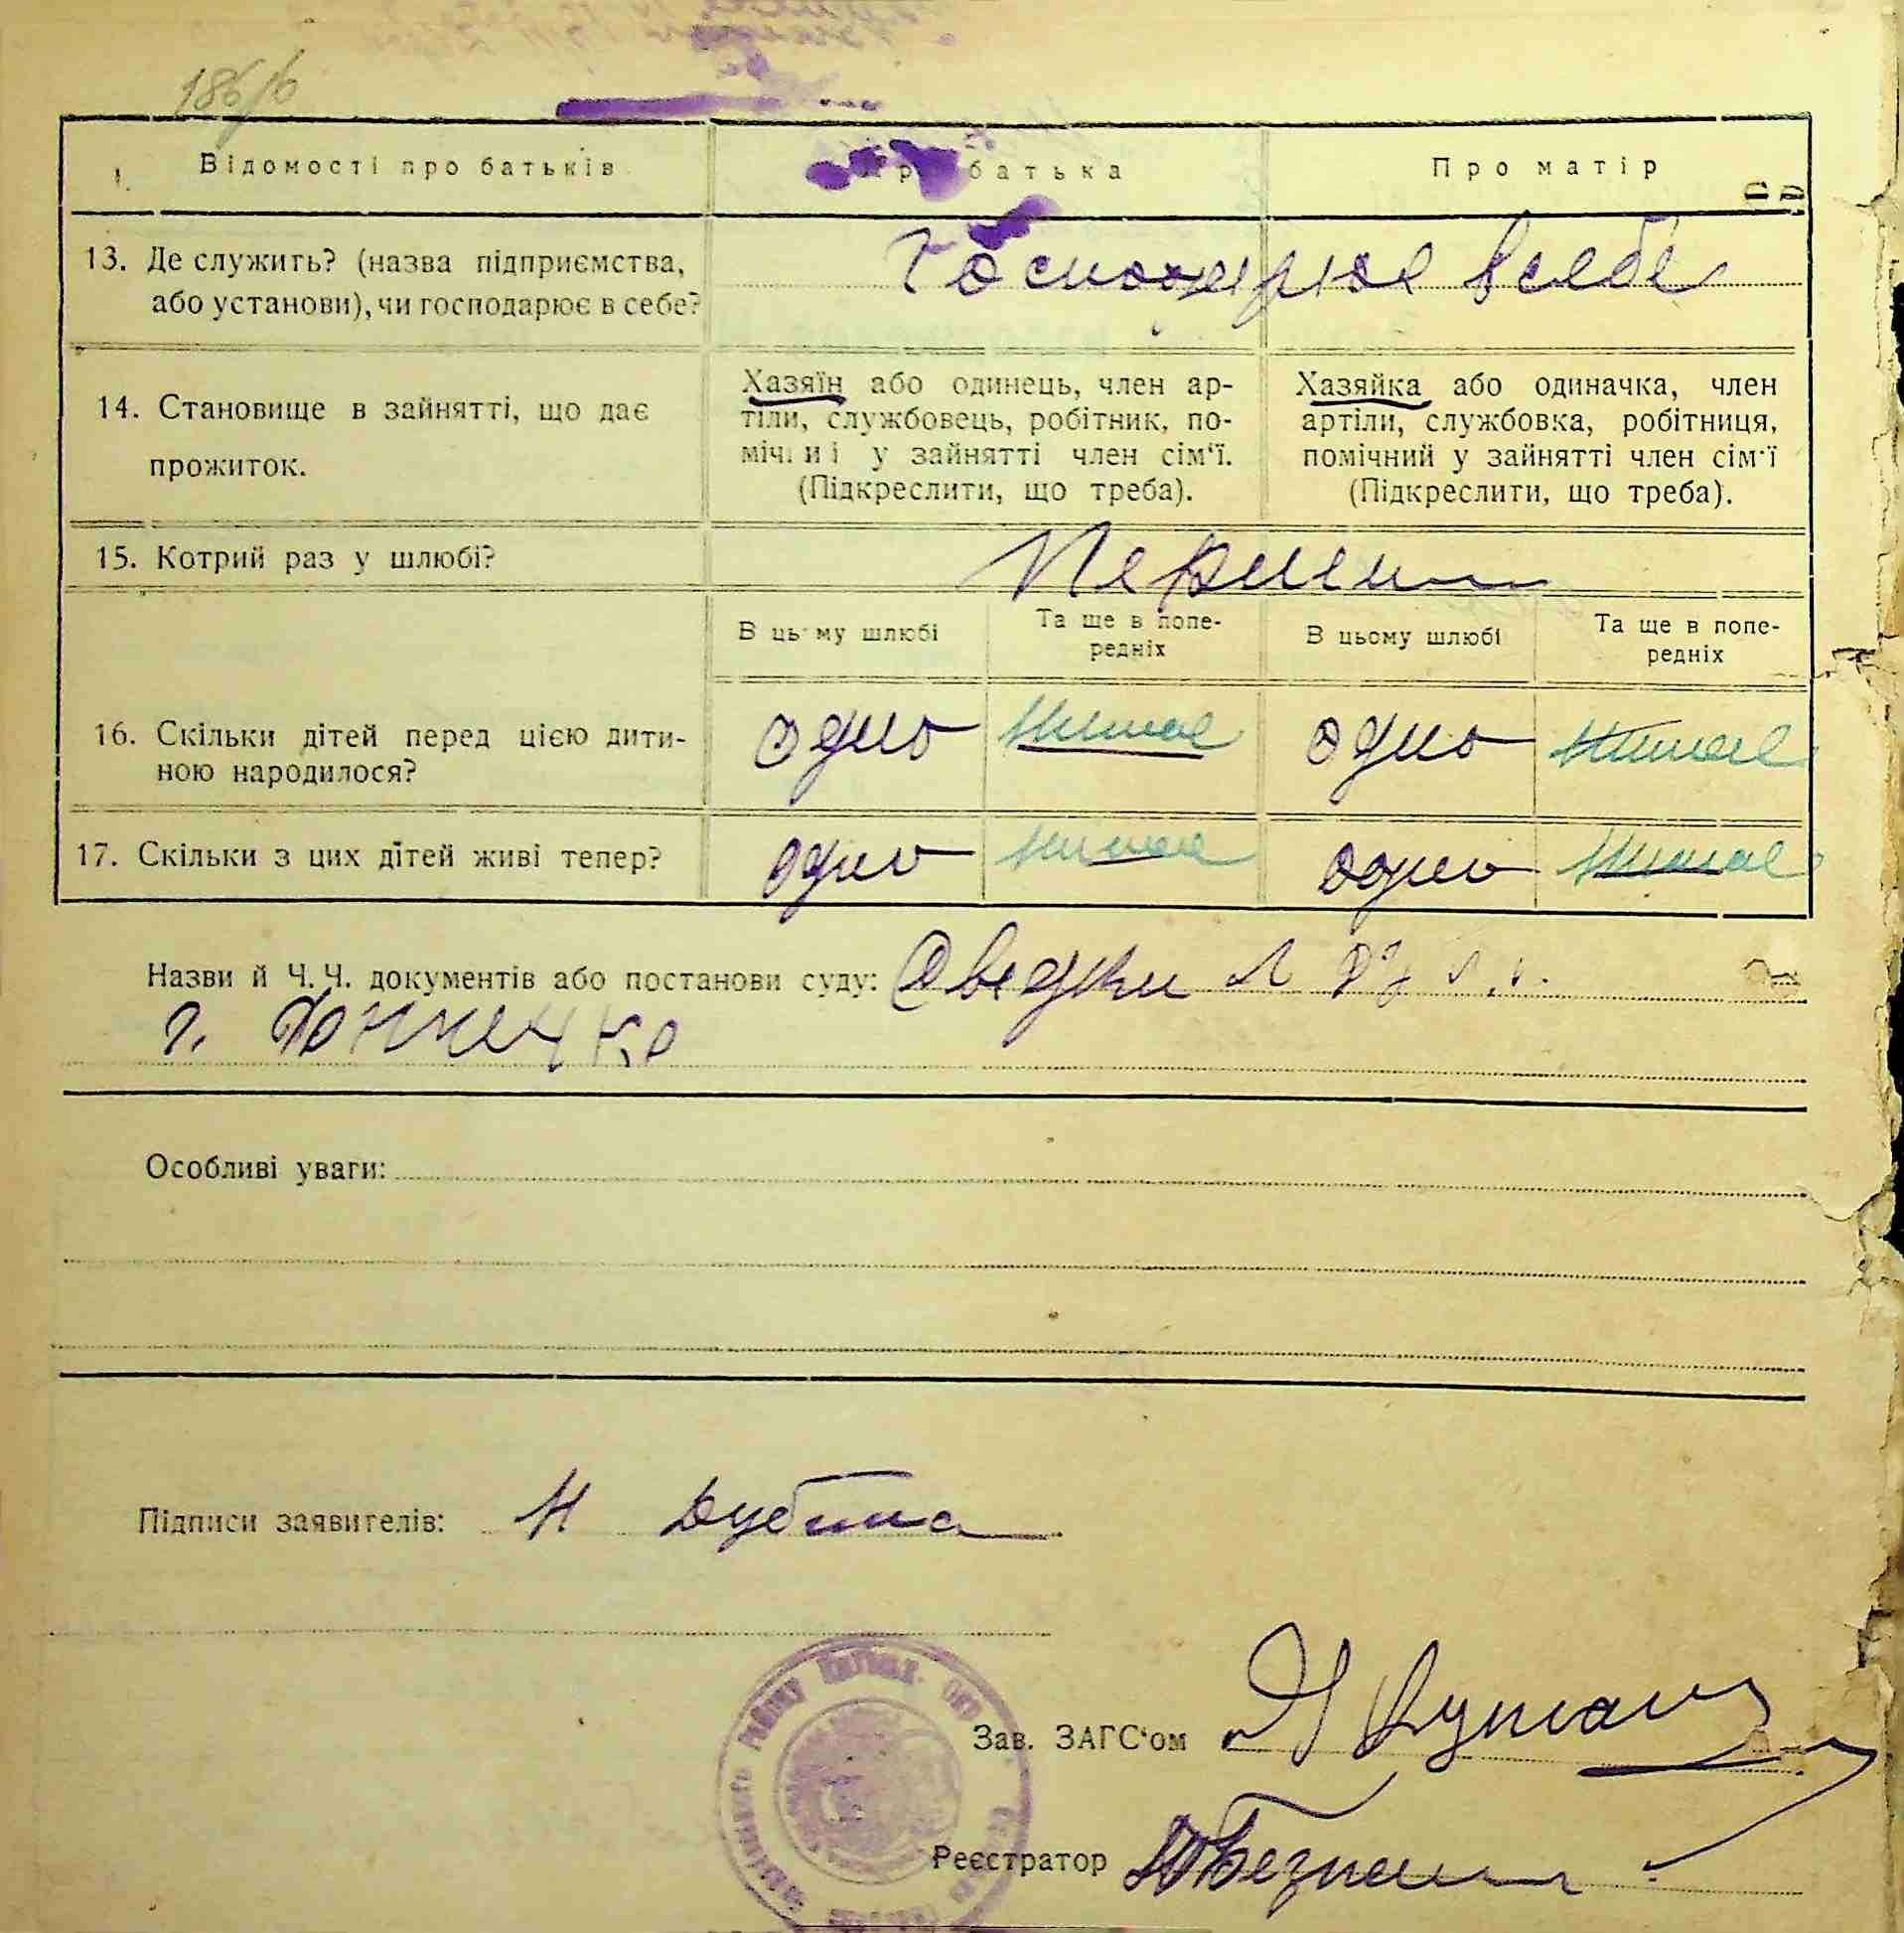 186/6
Відомості про батьків
Про батька
Про матір
13. Де служить? (назва підприємства,
або установи), чи господарює в себе?
Господарює в себе
14. Становище в зайнятті, що дає
прожиток.
Хазяїн або одинець, член ар-
тіли, службовець, робітник, по-
мічний у зайнятті член сім'ї.
(Підкреслити, що треба).
Хазяйка або одиначка, член
артіли, службовка, робітниця,
помічний у зайнятті член сім'ї
(Підкреслити, що треба).
15. Котрий раз у шлюбі?
Перший
В цьому шлюбі
Та ще в попе-
редніх
В цьому шлюбі
Та ще в попе-
редніх
16. Скільки дітей перед цією дити-
ною народилося?
одно немає одно немає
17. Скільки з цих дітей живі тепер?
одно немає одно немає
Назви й Ч.Ч. документів або постанови суду:
Особливі уваги:
Підписи заявителів: Н Дубина
Району
Зав. ЗАГС'ом
Реєстратор